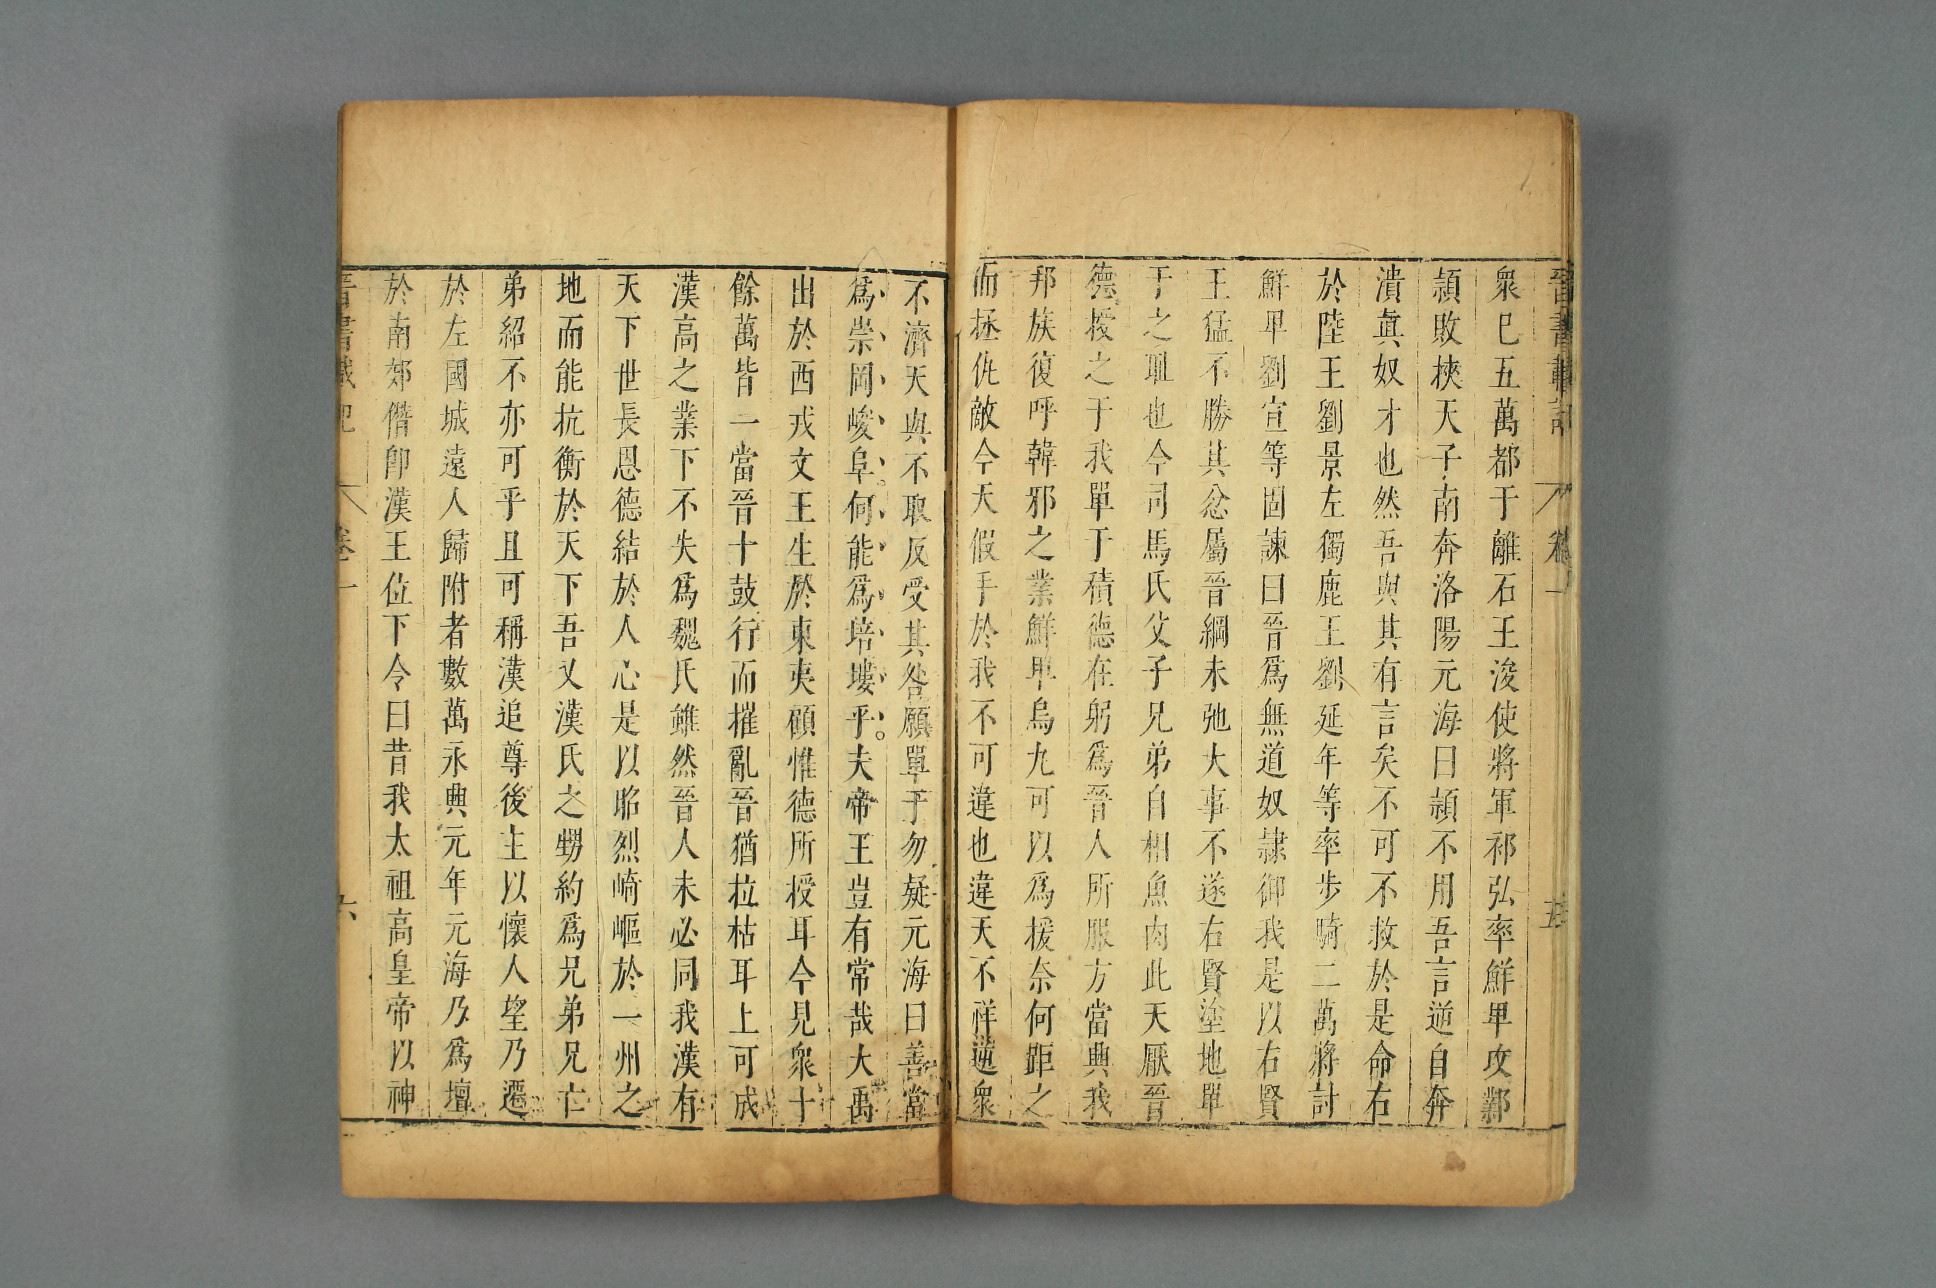 晉書載記 卷一 五
衆已五萬都于離石王浚使將軍祁弘率鮮卑攻鄴
穎敗挾天子南奔洛陽元海曰穎不用吾言逆自奔
潰眞奴才也然吾與其有言矣不可不救於是命右
於陸王劉景左獨鹿王劉延年等率步騎二萬將討
鮮卑劉宣等固諫曰晉爲無道奴隷御我是以右賢
王猛不勝其忿屬晉綱未弛大事不遂右賢塗地單
于之恥也今司馬氏父子兄弟自相魚肉此天厭晉
德授之于我單于積德在躬爲晉人所服方當興我
邦族復呼韓邪之業鮮卑烏丸可以爲援奈何距之
而拯仇敵今天假手於我不可違也違天不祥逆衆
不濟天與不取反受其咎願單于勿疑元海曰善當
爲崇岡峻阜何能爲培塿乎夫帝王豈有常哉大禹
出於西戎文王生於東夷顧惟德所授耳今見衆十
餘萬皆一當晉十鼓行而摧亂晉猶拉枯耳上可成
漢高之業下不失爲魏氏雖然晉人未必同我漢有
天下世長恩德結於人心是以昭烈崎嶇於一州之
地而能抗衡於天下吾又漢氏之甥約爲兄弟兄亡
弟紹不亦可乎且可稱漢追尊後主以懷人望乃遷
於左國城遠人歸附者數萬永興元年元海乃爲壇
於南郊僭卽漢王位下令曰昔我太祖高皇帝以神
晉書載記 卷一 六